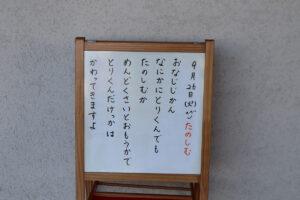 9月26日(火)
たのしむ
おなじじかん
なにかにとりくんでも
たのしむか
めんどくさいとおもうかで
とりくんだけっかは
かわってきますよ